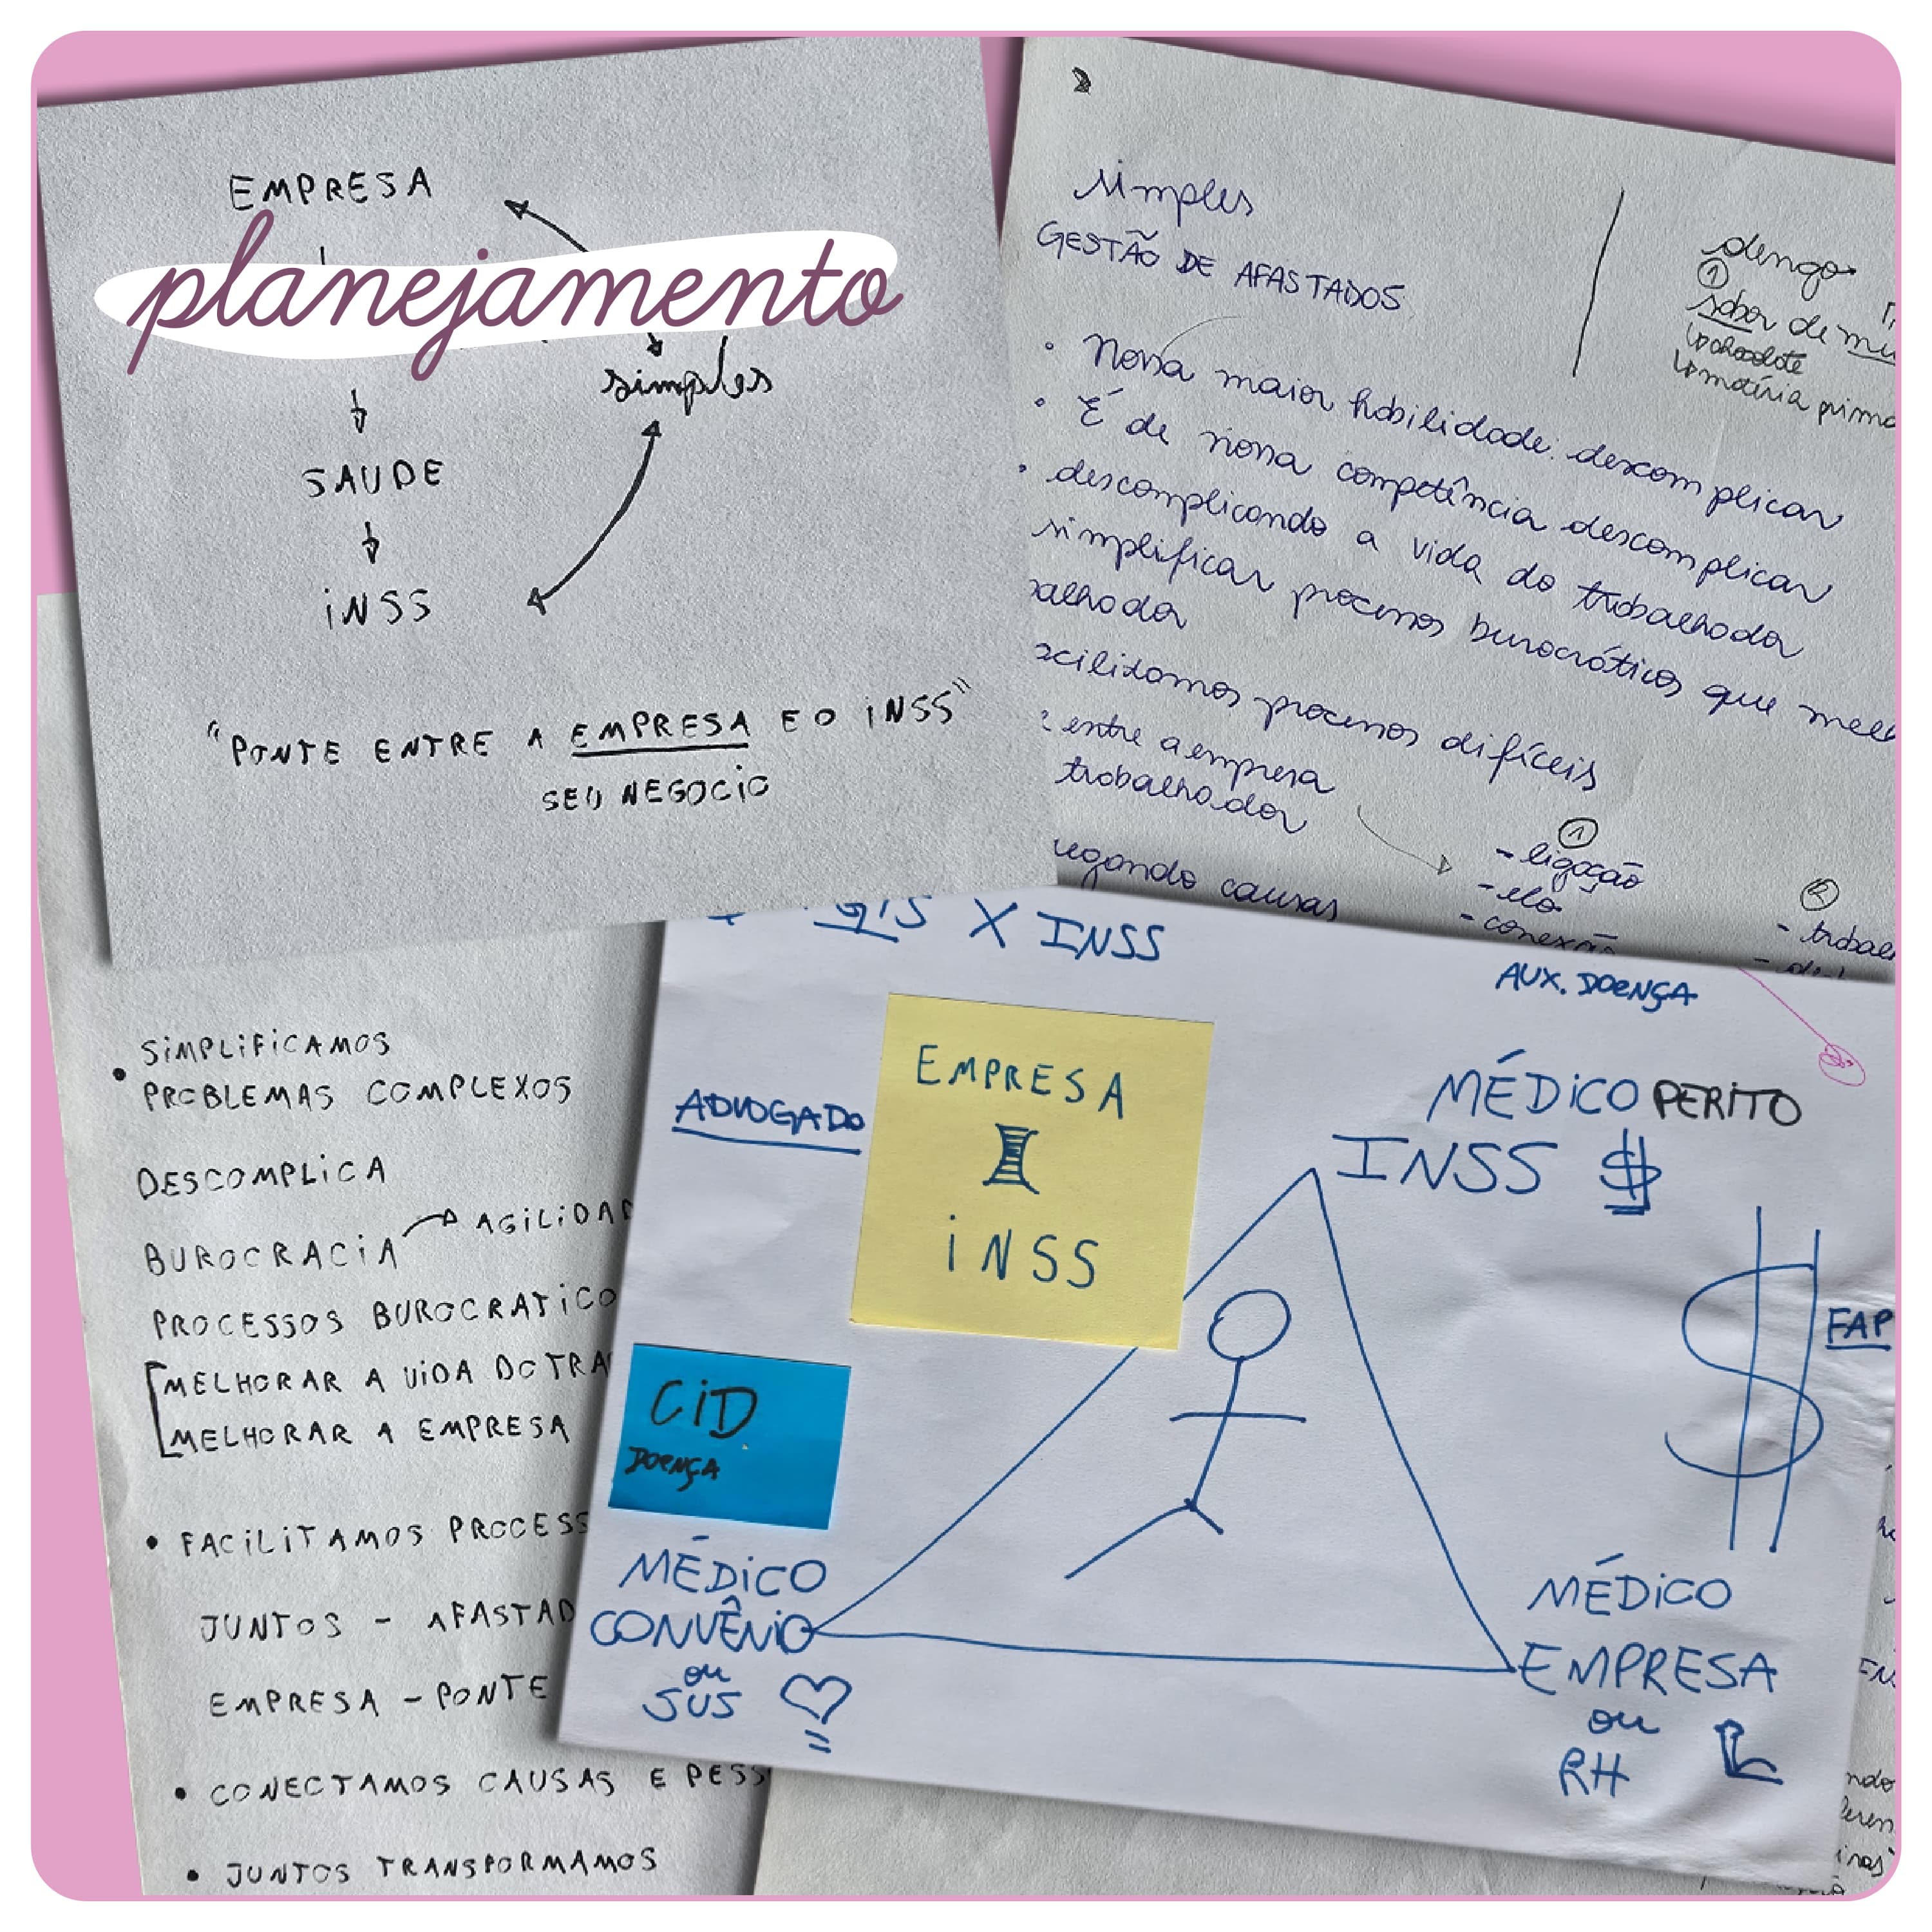 EMPRESA
planejamento
simples
SAUDE
iNSS
"PONTE ENTRE A EMPRESA E O iNSS"
SEU NEGOCIO
simples
GESTÃO DE AFASTADOS
dengo
1
sabor de
chocolate
matéria prima
• Nossa maior habilidade: descomplicar
• É de nossa competência descomplicar
• descomplicando a vida do trabalhador
simplificar processos burocráticos que
processos difíceis
entre a empresa
trabalhador
1
- ligação
- elo
- conexão
causas
2
• SIMPLIFICAMOS
PROBLEMAS COMPLEXOS
DESCOMPLICA
BUROCRACIA
PROCESSOS
MELHORAR A VIDA DO
MELHORAR A EMPRESA
• FACILITAMOS
JUNTOS -
EMPRESA - PONTE
• CONECTAMOS CAUSAS E
• JUNTOS TRANSFORMAMOS
X INSS
AUX. DOENÇA
ADVOGADO
EMPRESA
iNSS
MÉDICO PERITO
INSS $
$
FAP
CID
DOENÇA
MÉDICO
CONVÊNIO
ou
SUS
MÉDICO
EMPRESA
ou
RH